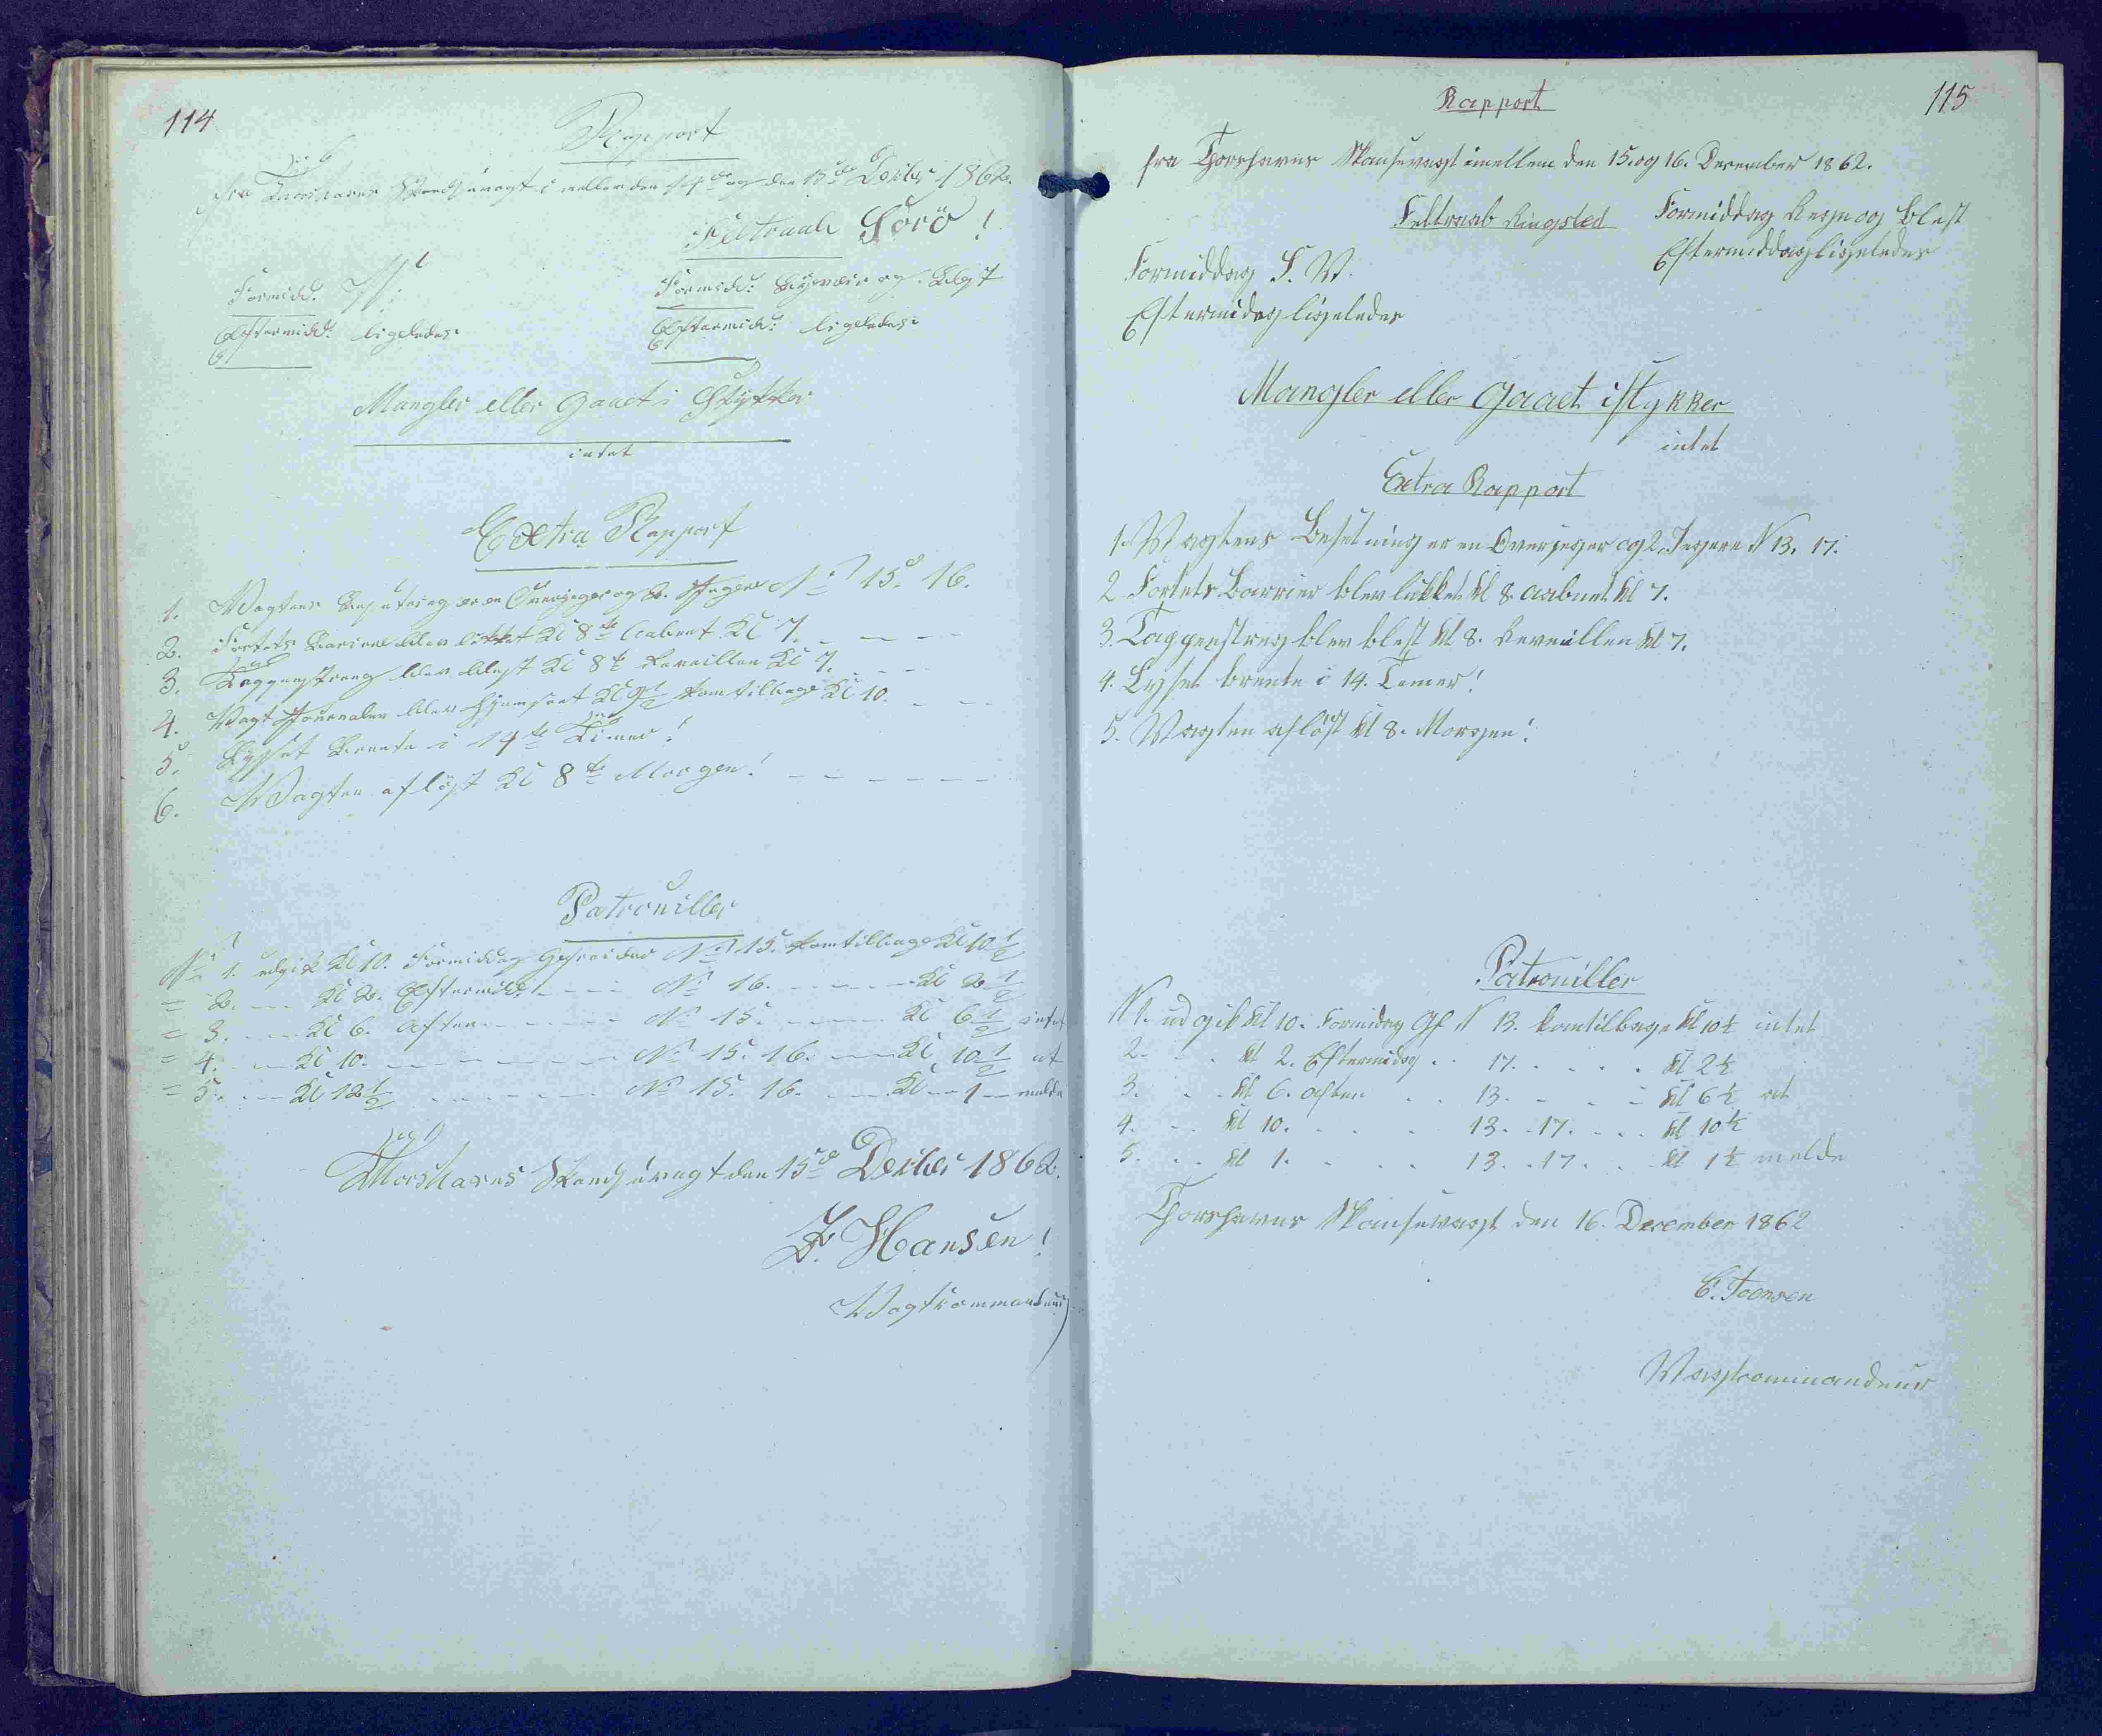 114
Rapport
fra Thorshavns Skandsevagt imellem den 14de og den 15de Decbr 1862.
Feltraab Sorö!
Formidd.
Formidd: og Blæst
Eftermidd. ligeledes
Eftermidd: ligeledes
Mangler eller Gaaet i Stykker
intet
Extra Rapport
1. Vagtens Besætning er en Overjæger og 2. Jægere No 15. 16.
2. Fortets Barriere blev lukket Kl 8te aabent Kl 7.
3. Tappenstreeg blev blæst Kl 8te Reveillen Kl 7.
4. Vagt Journalen blev hjemsent Kl 9½ kom tilbage Kl 10.
5. Lyset brente i 14te Timer!
6. Vagten aflöst Kl 8te Morgen!
Patrouiller
No 1. udgik Kl 10. Formiddag Gefreider No 15. kom tilbage Kl 10½
= 2. Kl 2. Eftermidd. No 16. Kl 2½
= 3. Kl 6. Aften No 15. Kl 6½ intet
= 4. Kl 10. No 15. 16. Kl 10½ at
= 5. Kl 12½ No 15. 16. Kl 1 melde
Thorshavns Skandsevagt den 15de Decbr 1862.
Hansen!
Vagtkommandeur
115
Rapport
fra Thorshavns Skansevagt imellem den 15. og 16. December 1862.
Feltraab Ringsted
Formiddag Regn og blest
Eftermiddag ligeledes
Formiddag S. W.
Eftermidag ligeledes
Mangler eller Gaaet istykker
intet
Extra Rapport
1. Vagtens Besetning er en Overjeger og 2. Jegere N 13. 17.
2. Fortets Barrier blev lukket kl 8. aabnet kl 7.
3. Tappenstreg blev blest kl 8. Reveillen kl 7.
4. Lyset brente i 14. Timer!
5. Vagten aflöst kl 8. Morgen!
Patrouiller
N 1. udgik kl 10. Formidag Gf N 13. kom tilbage kl 10½ intet
2. kl 2. Eftermidag 17. kl 2½
3. kl 6. aften 13. kl 6½ at
4. kl 10. 13. 17. kl 10½
5. kl 1. 13. 17. kl 1½ melde
Thorshavns Skansevagt den 16. December 1862
Joensen
Vagtkommandeur